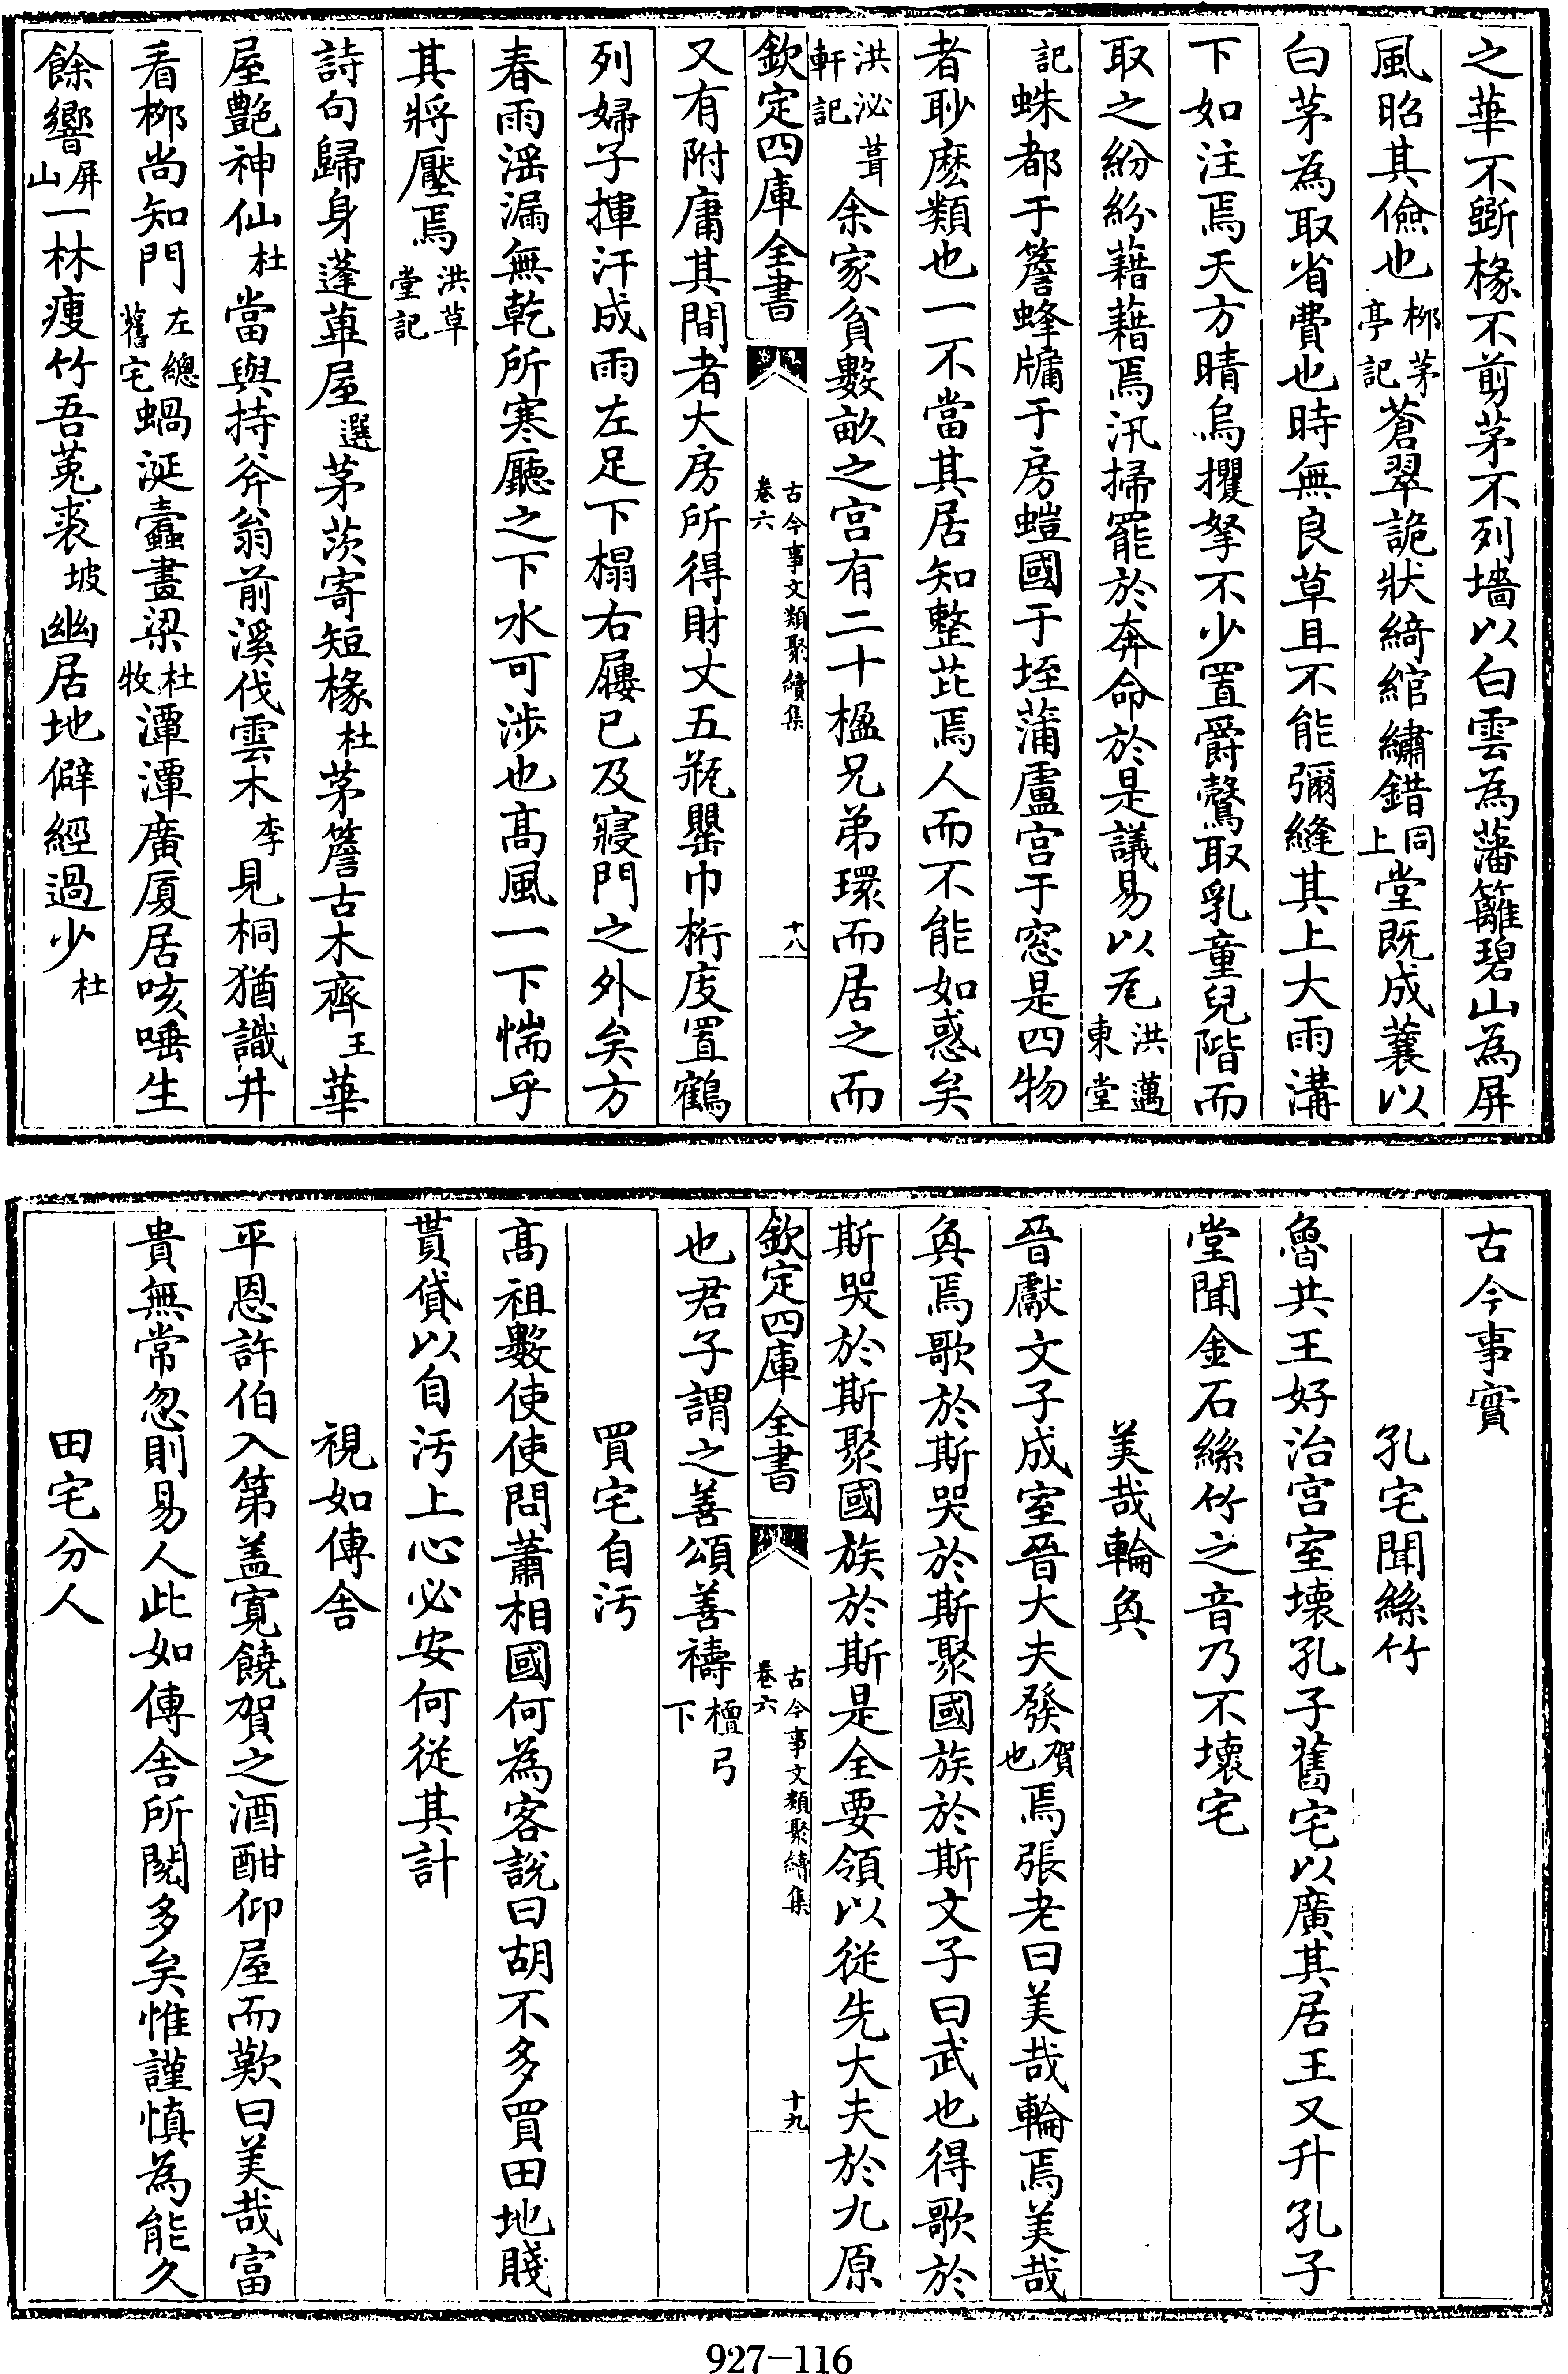 之華不斲椽不剪茅不列墻以白雲為藩籬碧山為屏
風昭其儉也栁茅亭記蒼翠詭狀綺綰繡錯同上堂既成蓑以
白茅為取省費也時無良草且不能彌縫其上大雨溝
下如注焉天方晴烏攫拏不少置爵鷇取乳童兒階而
取之紛紛藉藉焉汛掃罷於奔命於是議易以瓦洪邁東堂
記蛛都于簷蜂牖于房螘國于垤蒲盧宫于窓是四物
者眇麽類也一不當其居知整茈焉人而不能如惑矣
洪泌葺軒記余家貧數畝之宫有二十楹兄弟環而居之而
欽定四庫全書
古今事文類聚續集
卷六
十八
又有附庸其間者大房所得財丈五瓶罌巾桁庋置鶴
列婦子揮汗成雨左足下榻右屨已及寢門之外矣方
春雨滛漏無乾所寒廳之下水可涉也髙風一下惴乎
其將壓焉洪草堂記
詩句歸身蓬蓽屋選茅茨寄短椽杜茅簷古木齊王華
屋艶神仙杜當與持斧翁前溪伐雲木李見桐猶識井
看栁尚知門左總舊宅蝸涎蠧畫梁杜牧潭潭廣厦居咳唾生
餘響屏山一林瘦竹吾菟裘坡幽居地僻經過少杜
古今事實
孔宅聞絲竹
魯共王好治宫室壊孔子舊宅以廣其居王又升孔子
堂聞金石絲竹之音乃不壊宅
美哉輪奐
晉獻文子成室晉大夫發賀也焉張老曰美哉輪焉美哉
奐焉歌於斯哭於斯聚國族於斯文子曰武也得歌於
斯哭於斯聚國族於斯是全要領以從先大夫於九原
欽定四庫全書
古今事文類聚續集
卷六
十九
也君子謂之善頌善禱檀弓下
買宅自汚
髙祖數使使問蕭相國何為客說曰胡不多買田地賤
貰貸以自汚上心必安何從其計
視如傳舎
平恩許伯入第盖寛饒賀之酒酣仰屋而歎曰美哉富
貴無常忽則易人此如傳舎所閲多矣惟謹慎為能久
田宅分人
927-116